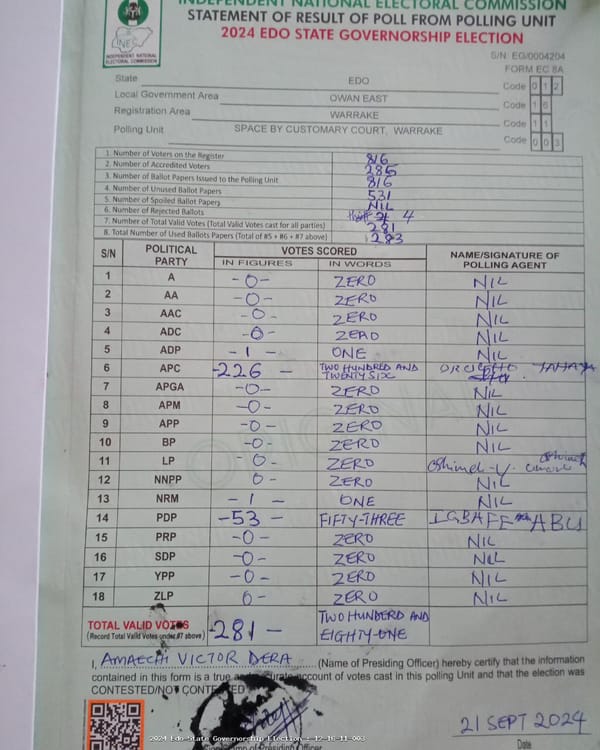 INDEPENDENT NATIONAL ELECTORAL COMMISSION
STATEMENT OF RESULT OF POLL FROM POLLING UNIT
2024 EDO STATE GOVERNORSHIP ELECTION
INEC
INDEPENDENT NATIONAL ELECTORAL COMMISSION
S/N: EG/0004204
FORM EC 8A
State EDO Code 0 1 2
Local Government Area OWAN EAST Code 1 6
Registration Area WARRAKE Code 1 1
Polling Unit SPACE BY CUSTOMARY COURT, WARRAKE Code 0 0 3
1. Number of Voters on the Register 816
2. Number of Accredited Voters 286
3. Number of Ballot Papers Issued to the Polling Unit 816
4. Number of Unused Ballot Papers 531
5. Number of Spoiled Ballot Papers NIL
6. Number of Rejected Ballots 4
7. Number of Total Valid Votes (Total Valid Votes cast for all parties) 281
8. Total Number of Used Ballots Papers (Total of #5 + #6 + #7 above) 283
S/N POLITICAL PARTY VOTES SCORED NAME/SIGNATURE OF POLLING AGENT
IN FIGURES IN WORDS
1 A -0- ZERO NIL
2 AA -0- ZERO NIL
3 AAC -0- ZERO NIL
4 ADC -0- ZERO NIL
5 ADP -1- ONE NIL
6 APC -226- TWO HUNDRED AND TWENTY SIX
7 APGA -0- ZERO NIL
8 APM -0- ZERO NIL
9 APP -0- ZERO NIL
10 BP -0- ZERO NIL
11 LP -0- ZERO
12 NNPP 0- ZERO NIL
13 NRM -1- ONE NIL
14 PDP -53- FIFTY-THREE IGBAFE ABU
15 PRP -0- ZERO NIL
16 SDP -0- ZERO NIL
17 YPP -0- ZERO NIL
18 ZLP 0- ZERO NIL
TOTAL VALID VOTES
(Record Total Valid Votes under #7 above) -281- TWO HUNDERD AND EIGHTY-ONE
I, AMAECHI VICTOR DERA (Name of Presiding Officer) hereby certify that the information
contained in this form is a true and accurate account of votes cast in this polling Unit and that the election was
CONTESTED/NOT CONTESTED
21 SEPT 2024
Date
2024 Edo State Governorship Election : 12-16-11_003